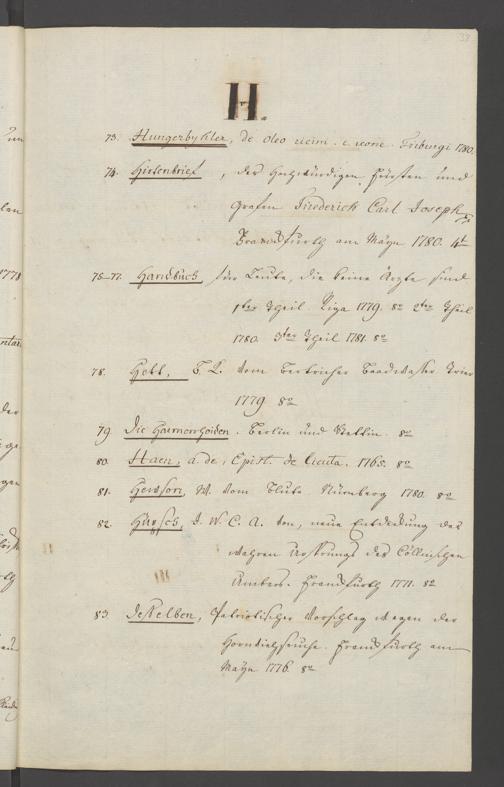 H.
73. Hungerbyhler, de oleo ricini. c. icone. Friburgi 1780.
74. Hirtenbrief, des Hochwürdigen Fürsten und
Grafen Friederich Carl Joseph
Franckfurth am Mayn 1780. 4to
75-77. Handbuch für Leute, die keine Ärzte sind
1ter Theil. Riga 1779. 8vo 2ter Theil
1780. 3ter Theil 1781. 8vo
78. vom Bertricher Baadwasser Trier
1779 8vo
79 Die Haemorrhoiden. Berlin und Stettin. 8vo
80. Haen, a. de, Epist. de Cicuta. 1765. 8vo
81. Hewson, W. vom Blute Nürnberg 1780. 8vo
82. Hüpsch, J. W. C. A. von, neue Entdeckung des
wahren Ursprungs des Cöllnischen
Umbers. Franckfurth 1771. 82
83. desselben, Patriotischer Vorschlag wegen der
Hornviehseuche. Franckfurth am
Mayn 1776. 8vo